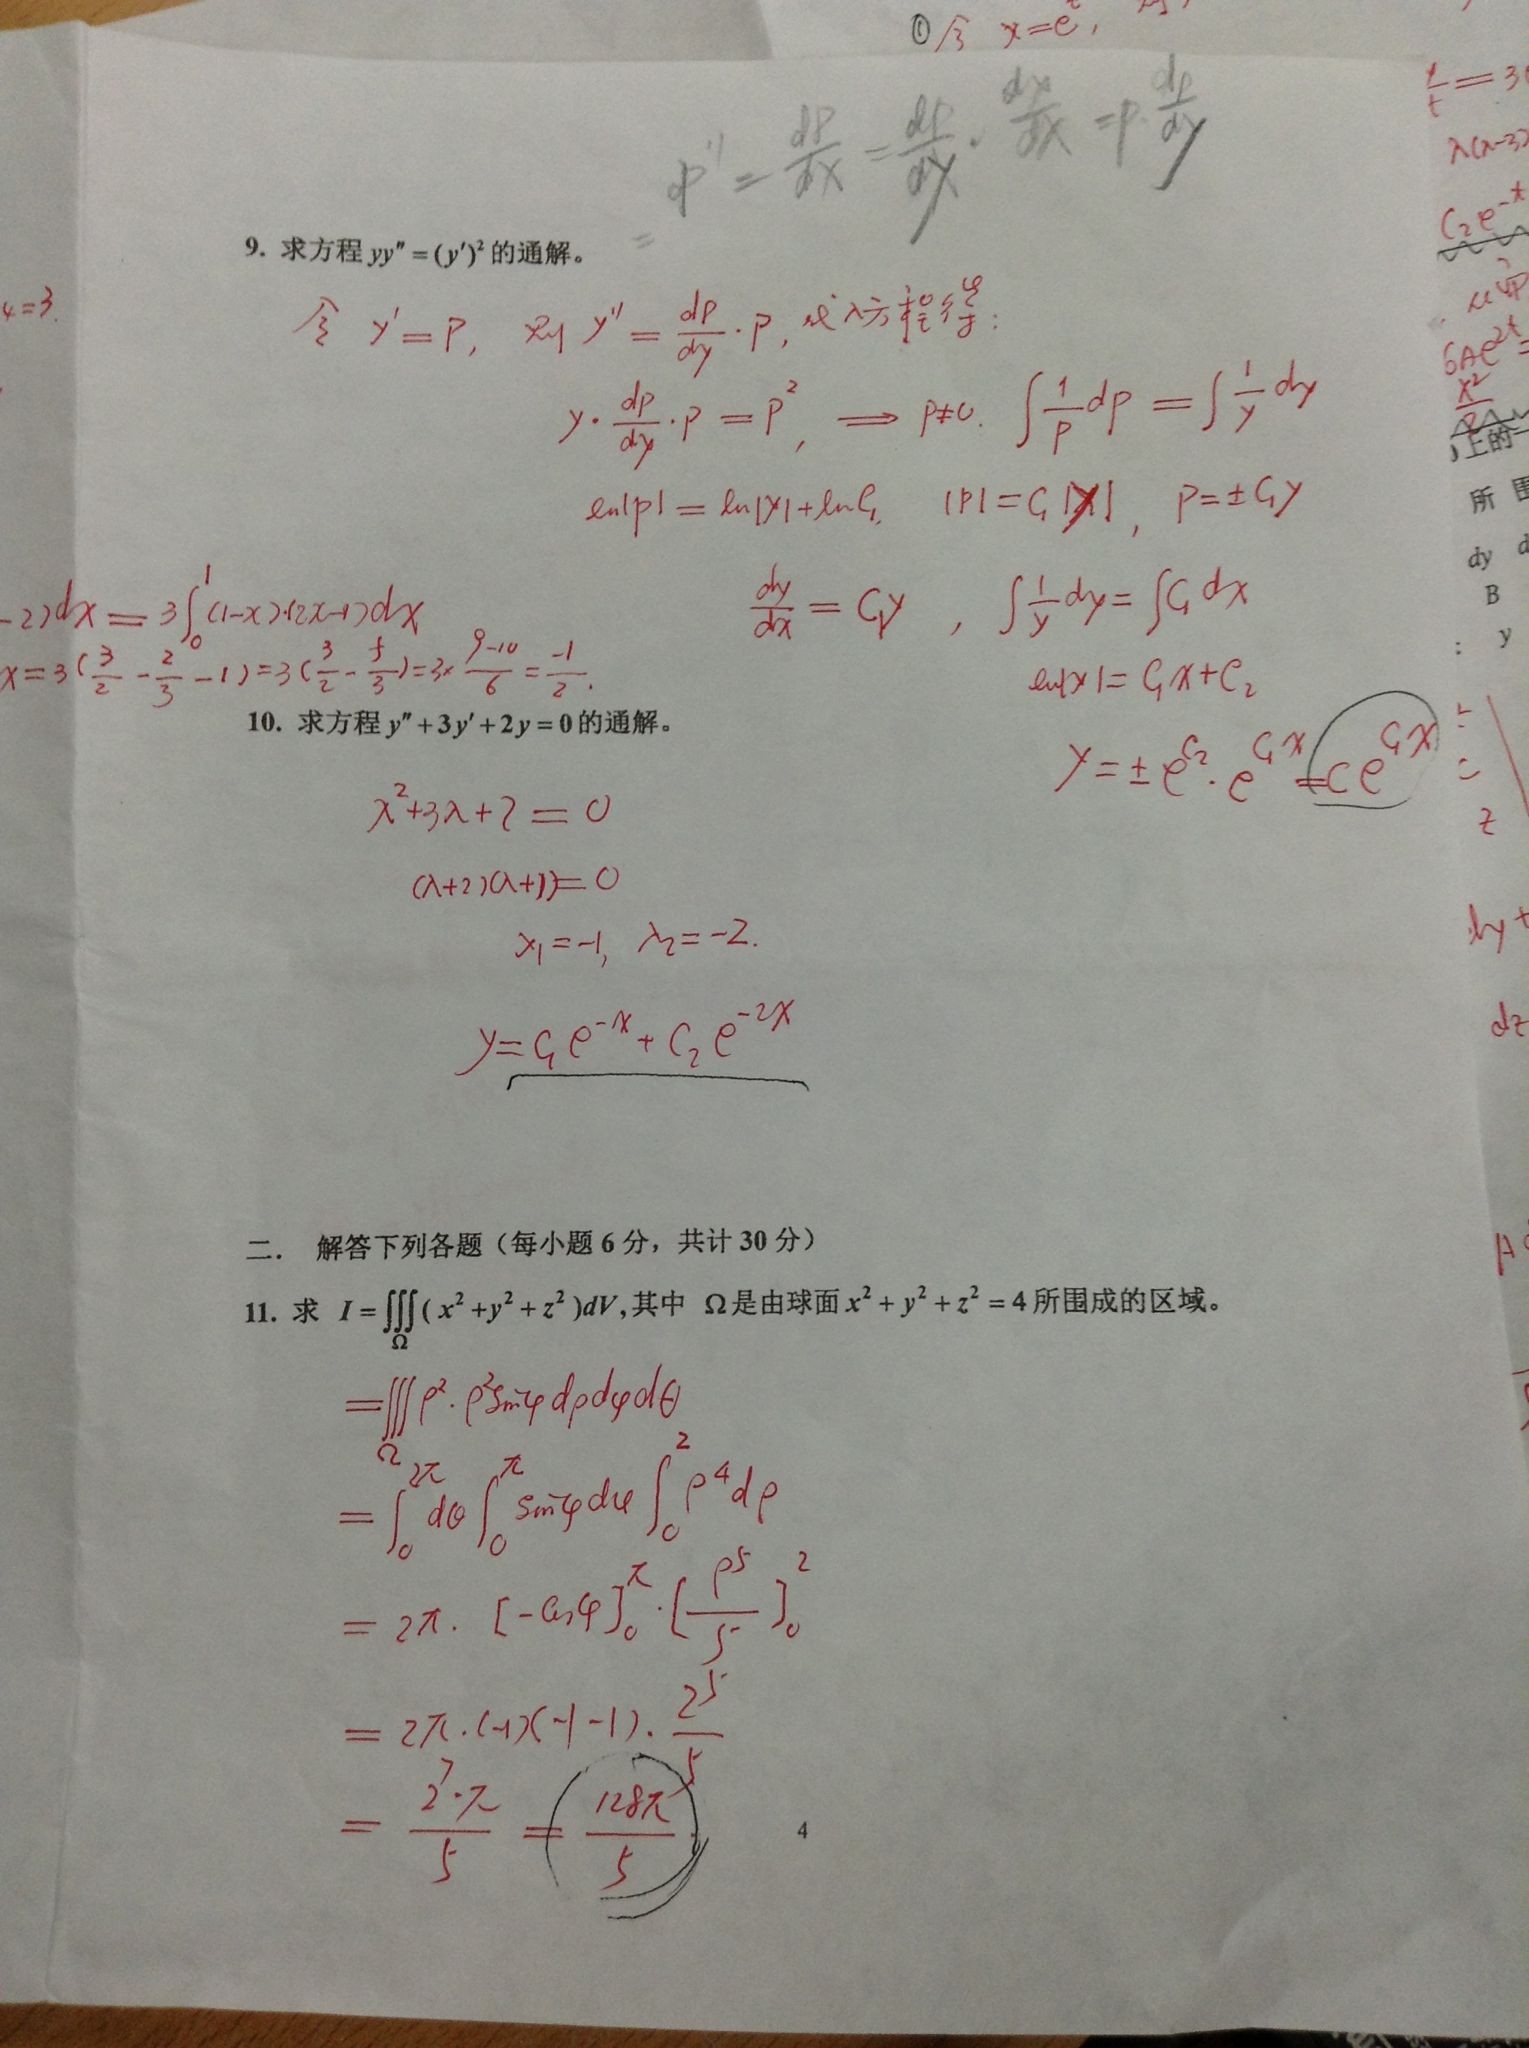 ① 令 x=e^t,
p'' = dp/dx = dp/dy · dx/dx = p · dp/dy
=
9. 求方程 yy″ = (y′)² 的通解。
令 y' = P, 则 y'' = dp/dy · P, 代入方程得:
y · dp/dy · P = P², ⟹ P≠0. ∫ 1/P dp = ∫ 1/y dy
ln|P| = ln|y| + ln C₁, |P| = C₁|y|, P = ± C₁y
dy/dx = C₁y, ∫ 1/y dy = ∫ C₁ dx
ln|y| = C₁x + C₂
y = ± e^{C₂} · e^{C₁x} = C e^{C₁x}
4=3.
-2)dx = 3∫₀¹ (1-x)·(2x-1)dx
x = 3(3/2 - 2/3 - 1) = 3(3/2 - 5/3) = 3× (9-10)/6 = -1/2.
10. 求方程 y″ + 3y′ + 2y = 0 的通解。
λ² + 3λ + 2 = 0
(λ+2)(λ+1) = 0
λ₁ = -1, λ₂ = -2.
y = C₁e^{-x} + C₂e^{-2x}
二. 解答下列各题（每小题 6 分，共计 30 分）
11. 求 I = ∭_Ω ( x² + y² + z² )dV, 其中 Ω 是由球面 x² + y² + z² = 4 所围成的区域。
= ∭_Ω ρ² · ρ² sinφ dρ dφ dθ
= ∫₀^{2π} dθ ∫₀^π sinφ dφ ∫₀² ρ⁴ dρ
= 2π · [-cosφ]₀^π · [ρ⁵/5]₀²
= 2π · (-1)(-1-1) · 2⁵/5
= 2⁷·π/5 = 128π/5
4
λ(λ-3)
C₂e^{-x}
6Ae^{2t} =
上的一
所 围
dy d
B
: y
z
dy +
dz
A